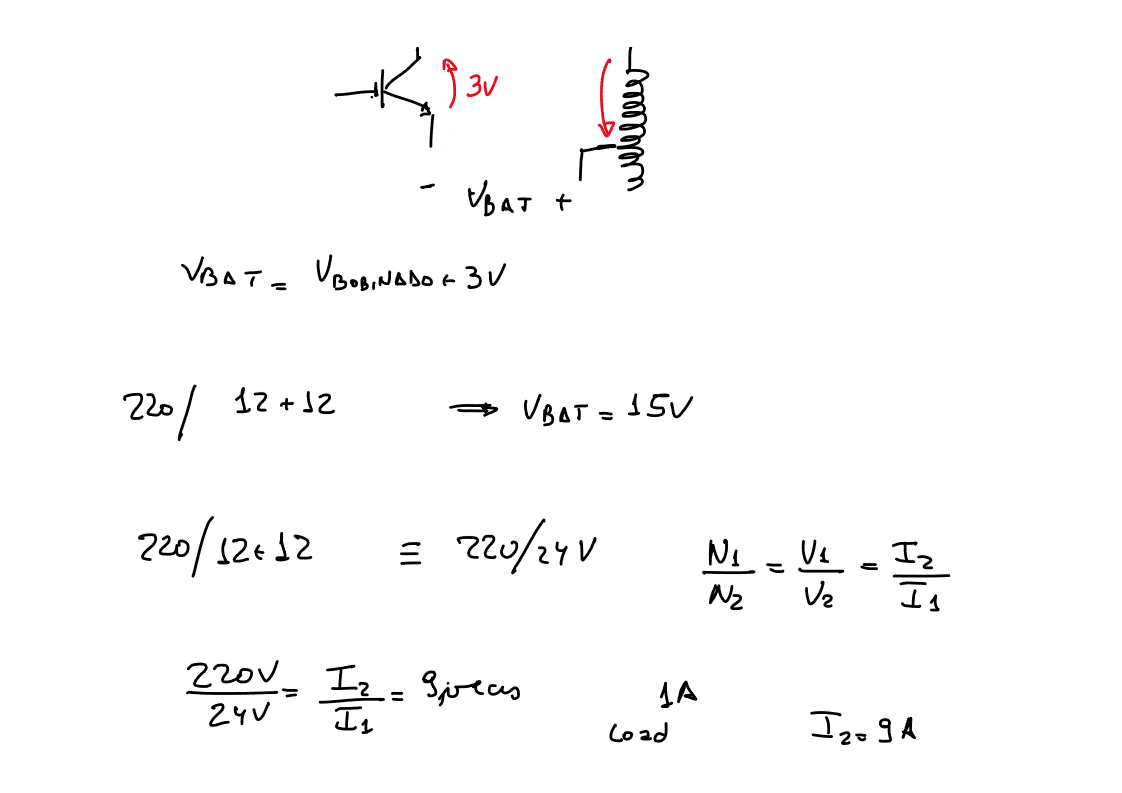 3V
- VBAT +
VBAT = VBOBINADO + 3V
220/ 12+12 ⇒ VBAT = 15V
220/12+12 ≡ 220/24V N1/N2 = V1/V2 = I2/I1
220V/24V = I2/I1 = 9 1A
Load I2=9A